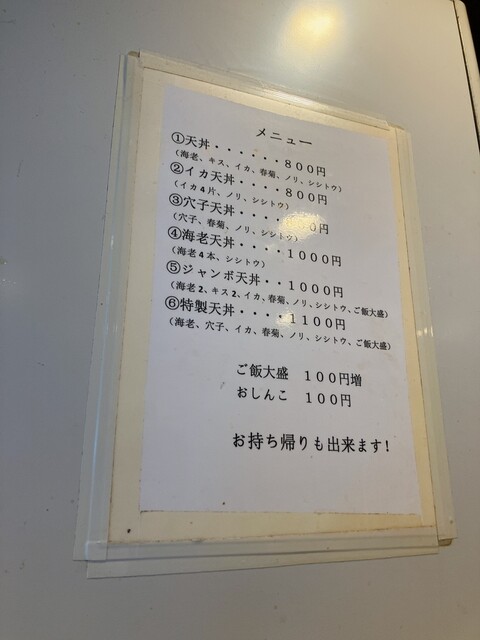 メニュー
①天丼・・・・・・８００円
（海老、キス、イカ、春菊、ノリ、シシトウ）
②イカ天丼・・・・８００円
（イカ４片、ノリ、シシトウ）
③穴子天丼・・・・０円
（穴子、春菊、ノリ、シシトウ）
④海老天丼・・・・１０００円
（海老４本、シシトウ）
⑤ジャンボ天丼・・１０００円
（海老２、キス２、イカ、春菊、ノリ、シシトウ、ご飯大盛）
⑥特製天丼・・・・１１００円
（海老、穴子、イカ、春菊、ノリ、シシトウ、ご飯大盛）
ご飯大盛　１００円増
おしんこ　１００円
お持ち帰りも出来ます！